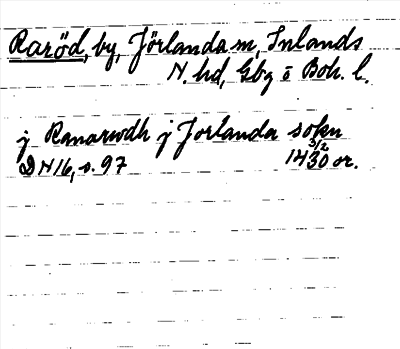 Raröd, by, Jörlanda sn, Inlands
N. hd, Gbg o Boh. l.
j Ranarwdh j Jorlanda sokn
3/2
DN 16, s. 97 1430 or.